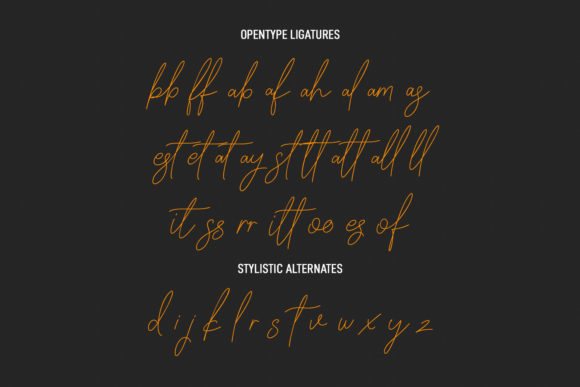 OPENTYPE LIGATURES
bb ff ab af ah al am as
est et at ay st tt att all ll
it ss rr itt oo es of
STYLISTIC ALTERNATES
d i j k l r s t v w x y z